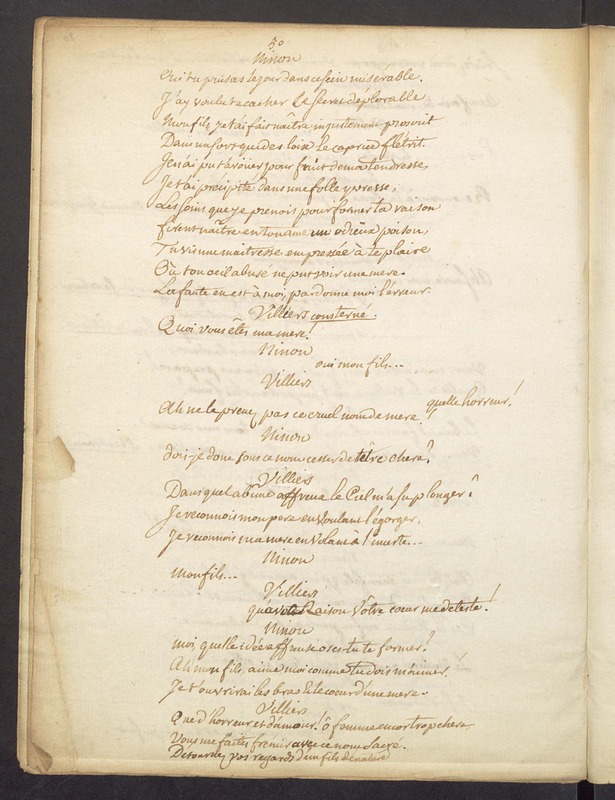 50
Ninon
Qui tu puisas le jour dans ce sein misérable.
J'ay voulu te cacher le secret déplorable
Mon fils, je t'ai fait naître injustement proscrit
Dans un sort que des loix le caprice flétrit.
Je n'ai pu t'avouer pour fruit de ma tendresse,
Je t'ai précipité dans une folle yvresse,
Les soins que je prenois pour former ta raison
firent naître en ton ame un odieux poison,
Tu vis une maitresse empressée à te plaire
Où ton oeil abusé ne put voir une mere.
La faute en est à moi, pardonne moi l'erreur.
Villiers consterné.
Quoi vous êtes ma mere!
Ninon
oui mon fils...
Villiers
quelle horreur!
Ah ne la prenez pas ce cruel nom de mere!
Ninon
dois-je donc sous ce nom cesser de t'être chere?
Villiers
Dans quel abîme affreux le Ciel m'a su plonger?
Je reconnois mon pere en voulant l'égorger,
Je reconnois ma mere en volant à l'inceste...
Ninon
Mon fils...
Villiers
qu'avec raison vôtre coeur me déteste!
Ninon
moi, quelle idée affreuse oses tu te former?
Ah mon fils, aime moi comme tu dois m'aimer.
Je t'ouvrirai les bras & le coeur d'une mere.
Villiers
Que d'horreur et d'amour! ô femme encor trop chere
Vous me faites frémir avec ce nom sacré.
Détournez vos regards d'un fils dénaturé